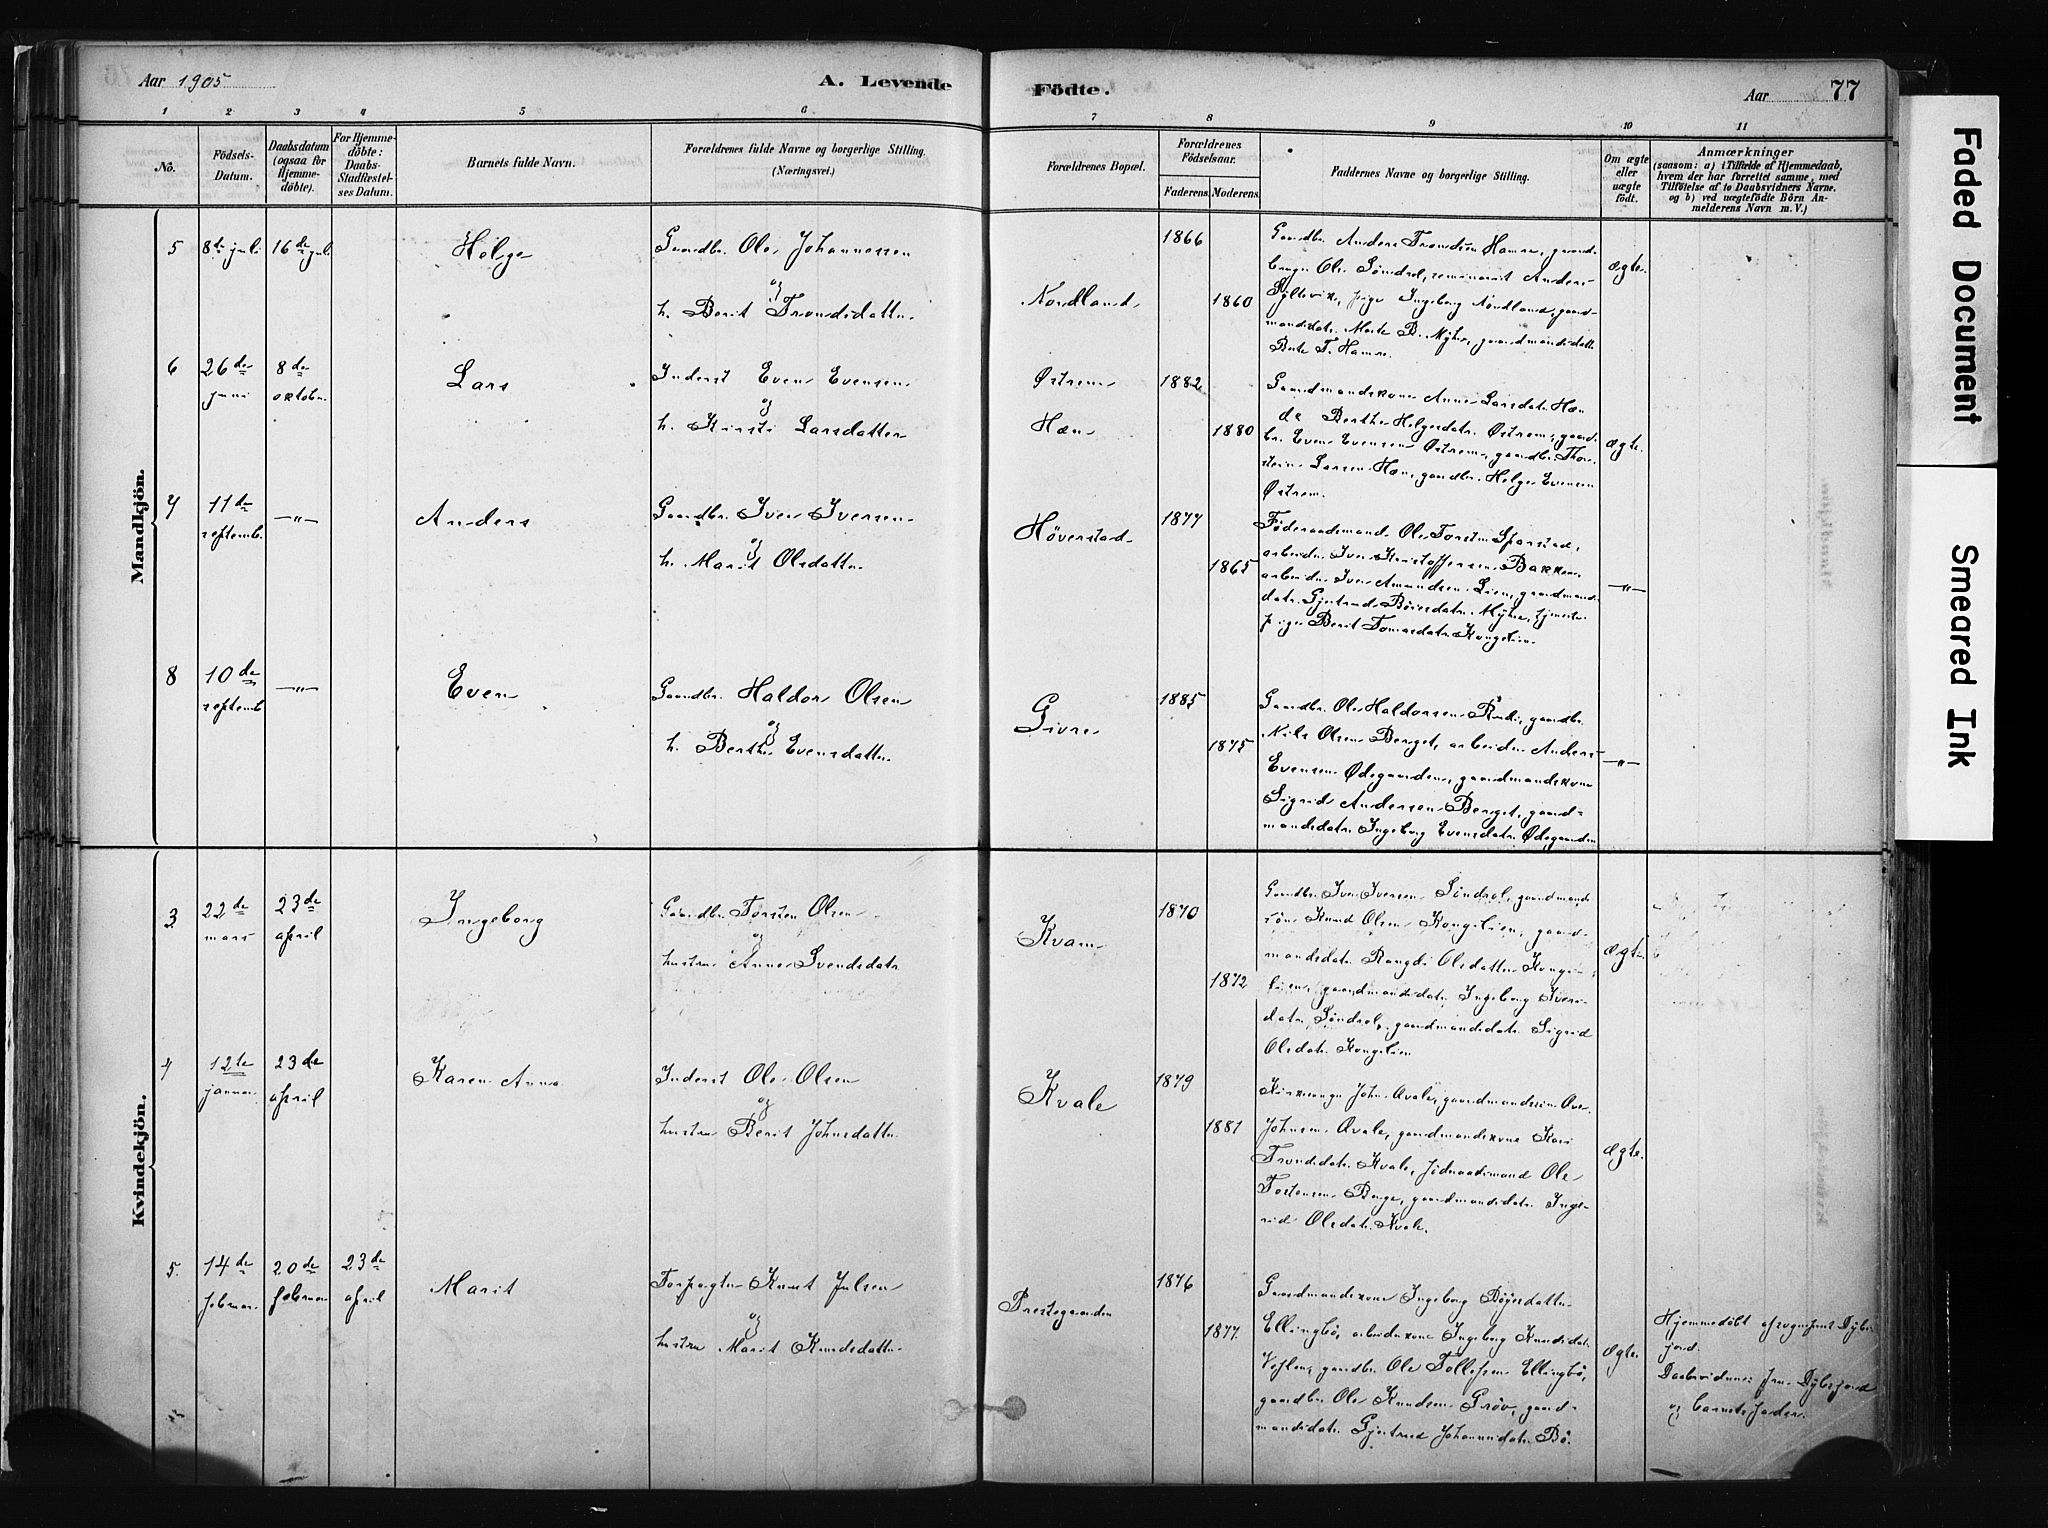 Aar 1905
A. Levende
Födte.
Aar
77
1 2 3 4 5 6 7 8 9 10 11
No.
Födsels-
Datum.
Daabsdatum
(ogsaa for
Hjemme-
döbte).
For Hjemme-
döbte:
Daabs-
Stadfæstel-
ses Datum.
Barnets fulde Navn.
Forældrenes fulde Navne og borgerlige Stilling.
(Næringsvei.)
Forældrenes Bopæl.
Forældrenes
Födselsaar.
Faderens. Moderens.
Faddernes Navne og borgerlige Stilling.
Om ægte
eller
uægte
födt.
Anmærkninger
(saasom: a) i Tilfælde af Hjemmedaab,
hvem der har forrettet samme, med
Tilföielse af to Daabsvidners Navne.
og b) ved uægtefödte Börn An-
melderens Navn m. V.)
Mandkjön.
5
8de juli
16de juli
Helge
Gaardbr. Ole Johannessen
og
h. Berit Trondsdatter
Nordland
1866
1860
Gaardbr. Anders Trondsen Hamre, gaard-
bruger Ole Søndrol, seminarist Anders
Syltevik, pige Ingeborg Nordland, gaard-
mandsdatr. Marte B. Myhre, gaardmandsdatter
Berte T. Hamre.
ægte.
6
26de
juni
8de
oktober
Lars
Inderst Even Evensen
og
h. Kirsti Larsdatter
Østrem
Hæn
1882
1880
Gaardmandskone Anne Larsdatr. Hæn
do Berthe Helgesdatr. Østrem, gaard-
br. Even Evensen Østrem, gaardbr. Thor-
stein Larsen Hæn, gaardbr. Helge Evensen
Østrem.
ægte.
7
11de
septemb.
—"—
Anders
Gaardbr. Iver Iversen
og
h. Marit Olsdatter
Höverstad
1877
1865
Føderaadsmand Ole Torsten Sparstad,
arbeider Iver Kristoffersen Bakken,
arbeider Iver Amundsen Lien, gaardmands-
datr. Gjertrud Böiesdatr. Myhre, tjeneste-
pige Berit Tomasdatr. Kongslien.
—"—
8
10de
septemb
—"—
Even
Gaardbr. Haldor Olsen
og
h. Berthe Evensdatter
Givre
1885
1875
Gaardbr. Ole Haldorsen Rudi, gaardbr.
Nils Olsen Berget, arbeider Anders
Evensen Ødegaarden, gaardmandskone
Sigrid Andersen Berget, gaard-
mandsdatr. Ingeborg Evensdatr. Ødegaarden
—"—
Kvindekjön.
3
22de
mars
23de
april
Ingeborg
Gaardbr. Torsten Olsen
og
hustru Anne Svendsdatr.
Kvam
1870
1872
Gaardbr. Iver Iversen Söndrol, gaardmands-
sön Knud Olsen Kongslien, gaard-
mandsdatr. Rangdi Olsdatter Kongs-
lien, gaardmandsdatr. Ingeborg Ivers-
datr. Söndrol, gaardmandsdatr. Sigrid
Olsdatr. Kongslien
ægte.
4
12te
januar
23de
april
Karen Anna
Inderst Ole Olsen
og
hustru Berit Johnsdatter
Kvale
1879
1881
Kirkesanger John Kvale, gaardmandssøn Ove
Johnsen Kvale, gaardmandskone Kari
Trondsdatr. Kvale, föderaadsmand Ole
Torstensen Bage, gaardmandsdatr. Inge-
rid Olsdatr. Kvale.
ægte.
5.
14de
februar
20de
februar
23de
april
Marit
Forpagter Knut Julsen
og
hustru Marit Knudsdatter
Prestegaarden
1876
1877.
Gaardmandskone Ingeborg Böyesdatter
Ellingbö, arbeiderkone Ingeborg Knudsdatr.
gaardbr. Ole Tollefsen Ellingbö,
gaardbr. Ole Knudsen Gröv, gaard-
mandsdatr. Gjertrud Johannesdatr. Bö.
ægte.
Hjemmedøbt af sogneprest Dybs-
jord.
Daabsvidner: fru Dybsjord
og barnets fader.
Faded Document
Smeared Ink